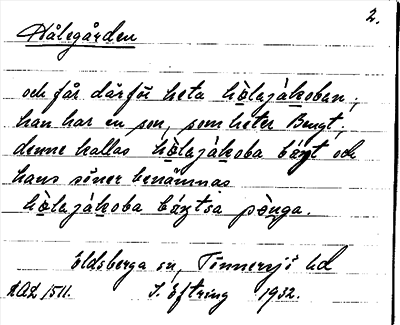 2.
Hålegården
och får därför heta hòlajákoban;
han har en son, som heter Bengt,
denne kallas hòlajákoba báŋt och
hans söner benämnas
hòlajákoba báŋtsa pòŋga.
Eldsberga sn, Tönnersjö hd
DAL 1511. I. Eftring 1932.